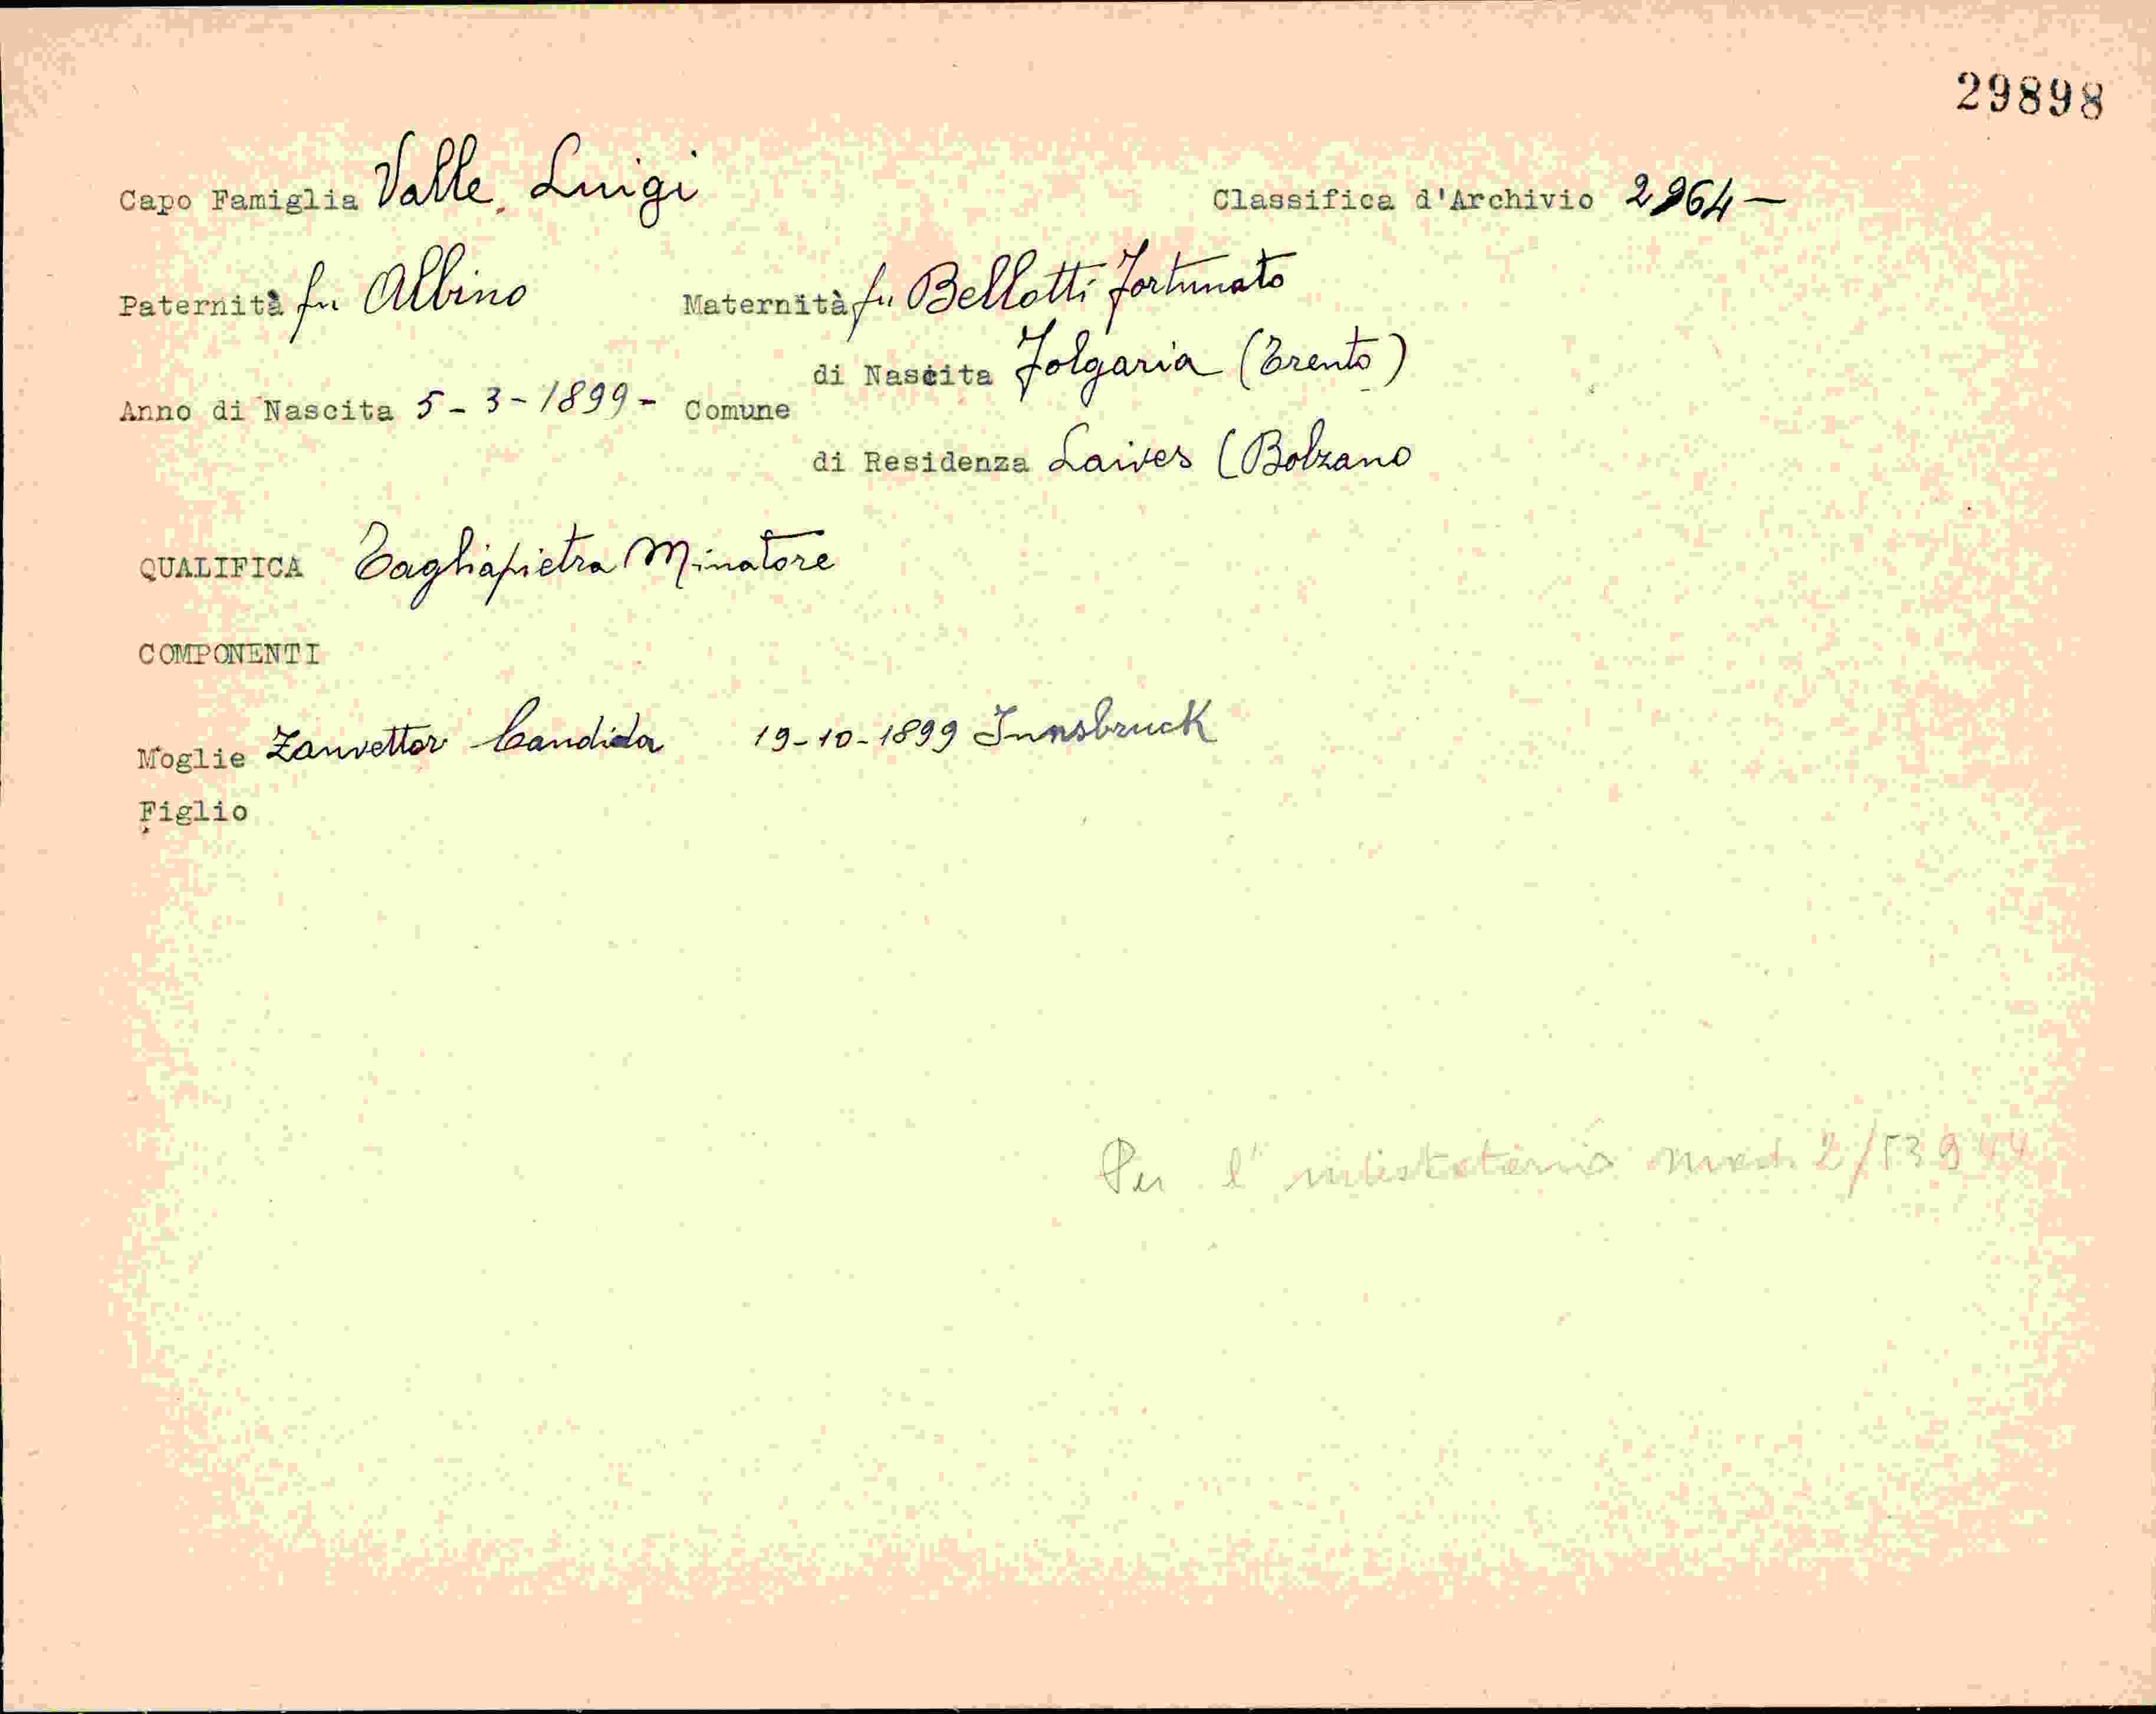 29898
Capo Famiglia Valle Luigi Classifica d'Archivio 2964 -
Paternità fu Albino Maternità fu Bellotti Fortunato
di Nascita Folgaria (Trento)
Anno di Nascita 5-3-1899- Comune
di Residenza Laives (Bolzano
QUALIFICA Tagliapietra Minatore
COMPONENTI
Moglie Zanvettor Candida 19-10-1899 Innsbruck
Figlio
Per l' 2/53944